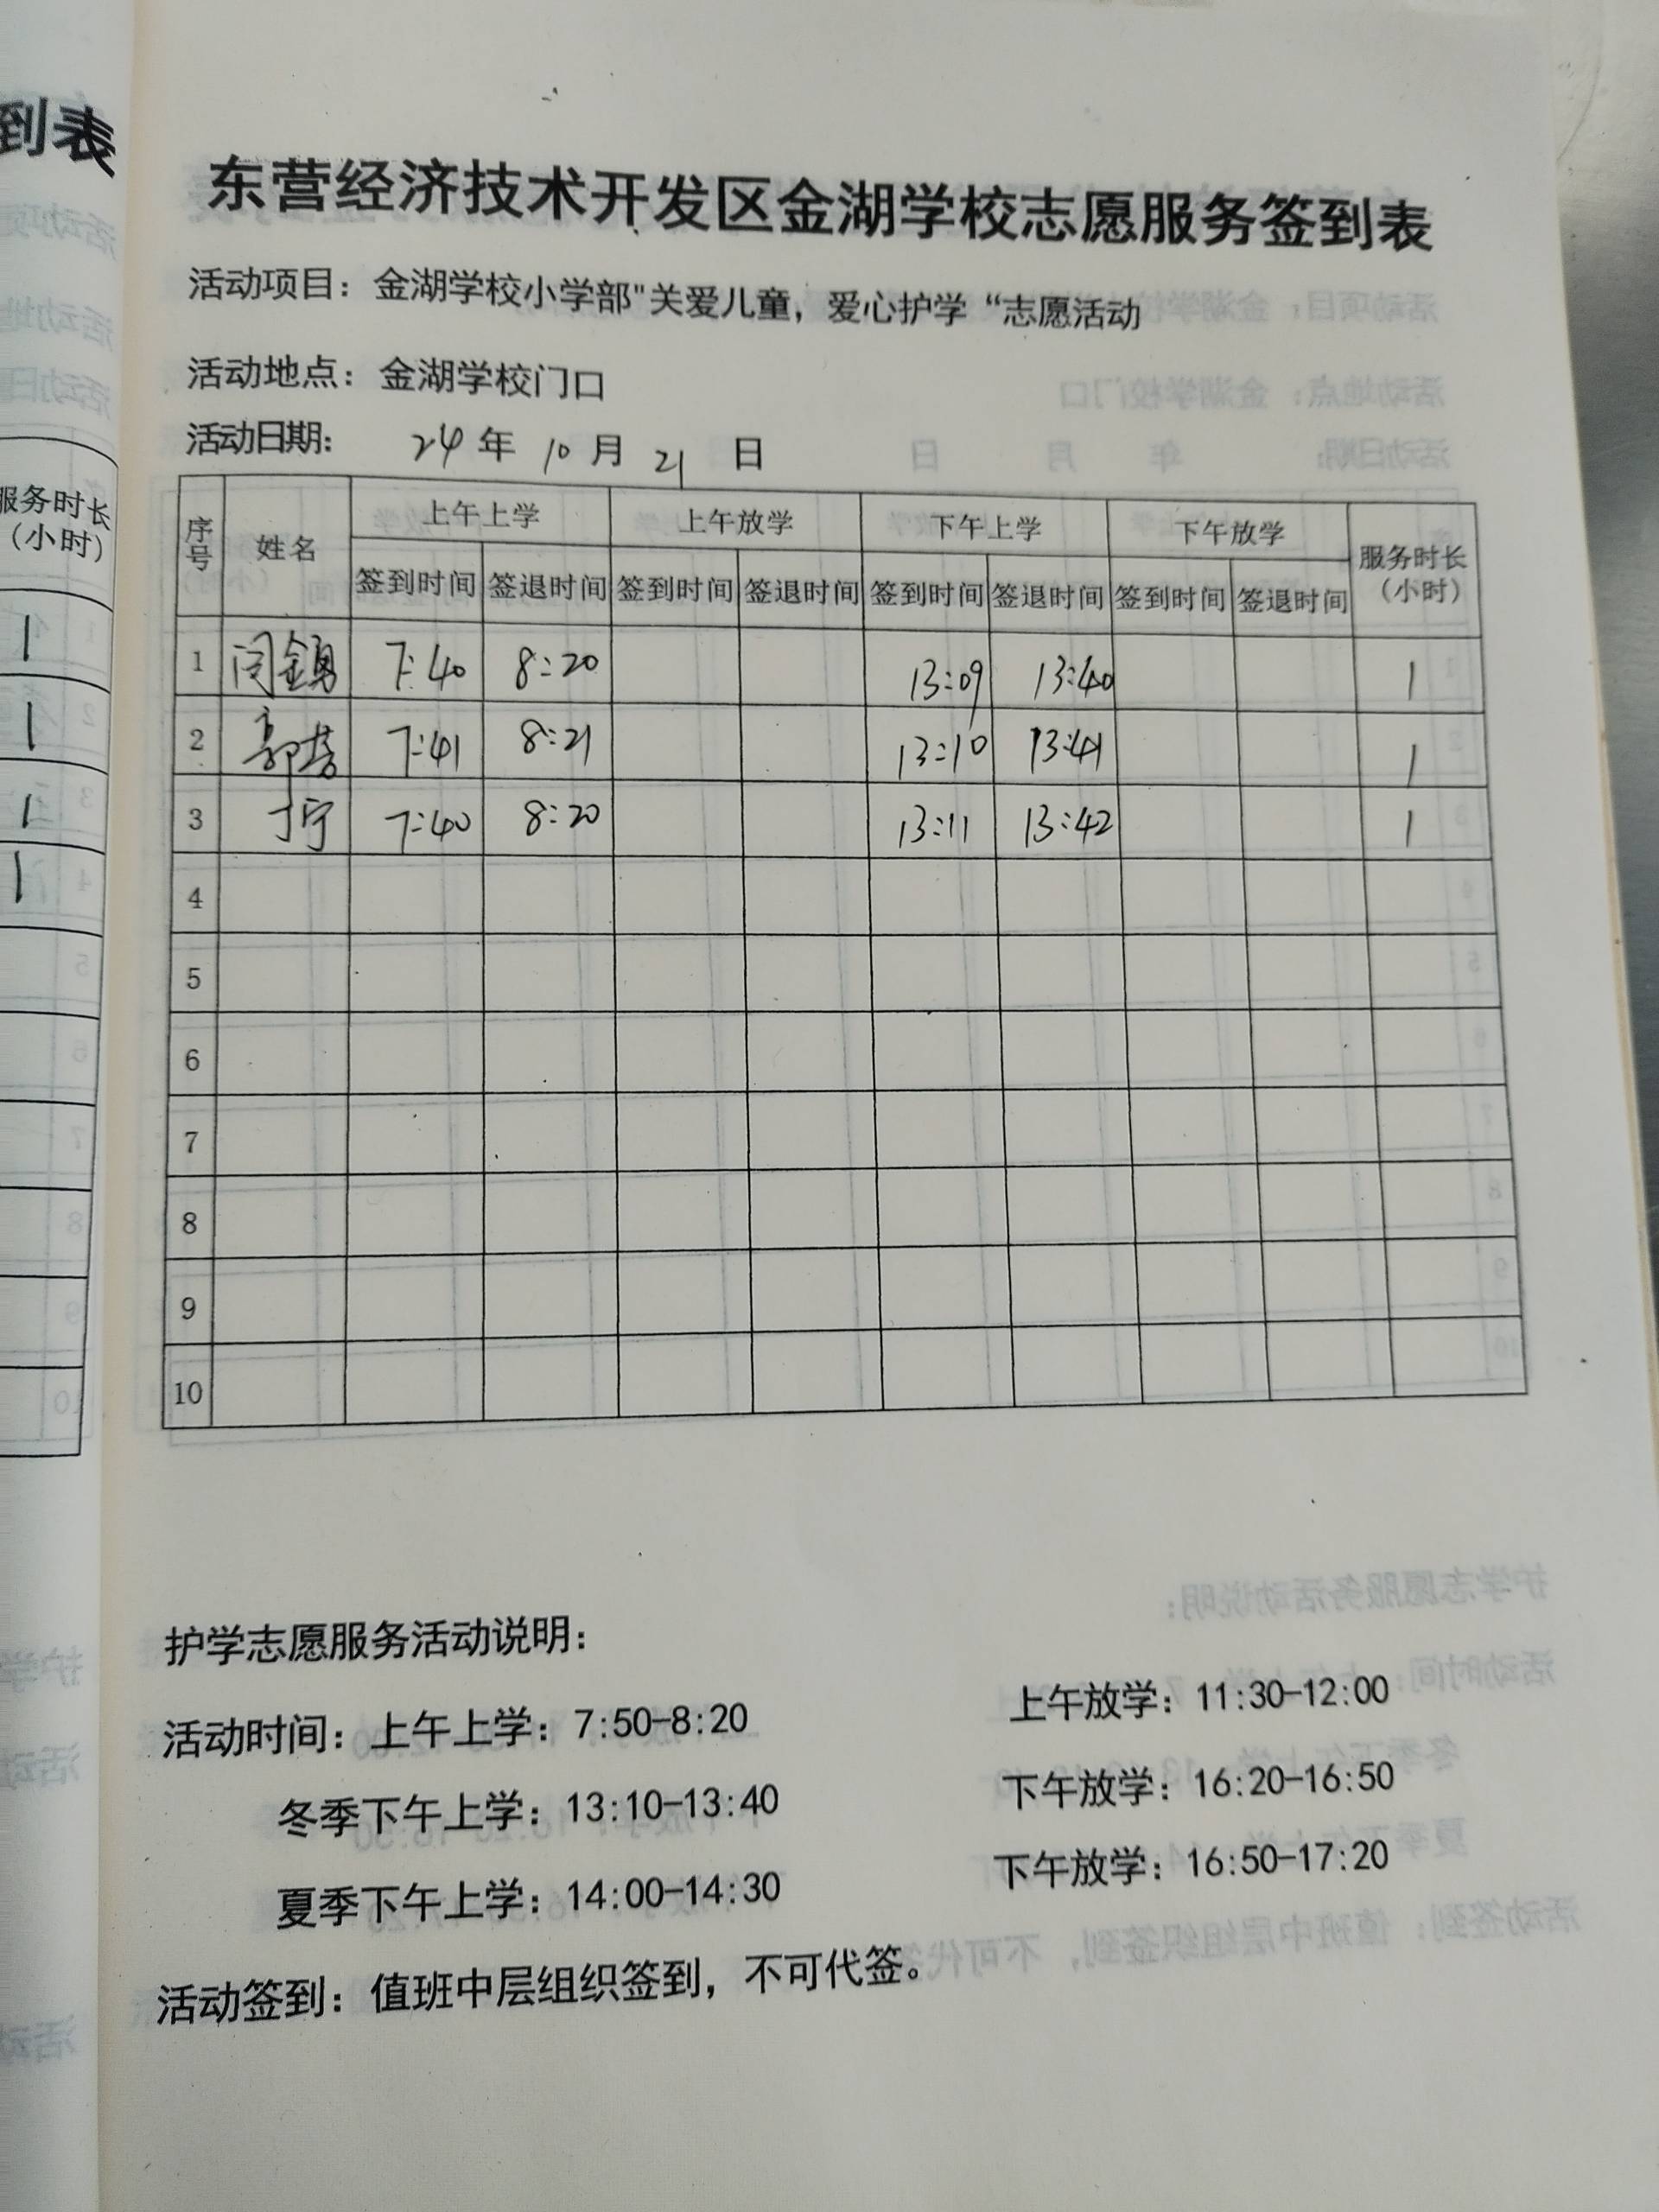 到表
服务时长
（小时）
1
1
1
1
东营经济技术开发区金湖学校志愿服务签到表
活动项目：金湖学校小学部"关爱儿童，爱心护学“志愿活动
活动地点：金湖学校门口
活动日期： 24 年 10 月 21 日
序号 姓名 上午上学 上午放学 下午上学 下午放学 服务时长（小时）
签到时间 签退时间 签到时间 签退时间 签到时间 签退时间 签到时间 签退时间
1 闫金勇 7:40 8:20 13:09 13:40 1
2 郭 7:41 8:21 13:10 13:41 1
3 丁宁 7:40 8:20 13:11 13:42 1
4
5
6
7
8
9
10
护学志愿服务活动说明：
活动时间：上午上学：7:50-8:20 上午放学：11:30-12:00
冬季下午上学：13:10-13:40 下午放学：16:20-16:50
夏季下午上学：14:00-14:30 下午放学：16:50-17:20
活动签到：值班中层组织签到，不可代签。